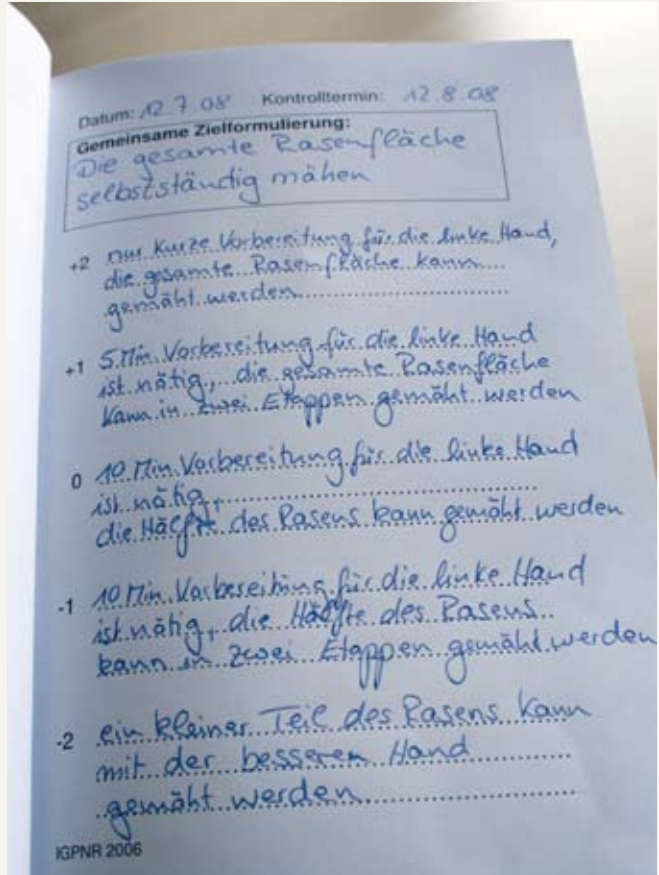 Datum: 12.7.08 Kontrolltermin: 12.8.08
Gemeinsame Zielformulierung:
Die gesamte Rasenfläche
selbstständig mähen
+2 nur kurze Vorbereitung für die linke Hand,
die gesamte Rasenfläche kann
gemäht werden
+1 5 Min. Vorbereitung für die linke Hand
ist nötig, die gesamte Rasenfläche
kann in zwei Etappen gemäht werden
0 10 Min. Vorbereitung für die linke Hand
ist nötig,
die Hälfte des Rasens kann gemäht werden
-1 10 Min. Vorbereitung für die linke Hand
ist nötig, die Hälfte des Rasens
kann in zwei Etappen gemäht werden
-2 ein kleiner Teil des Rasens kann
mit der besseren Hand
gemäht werden
IGPNR 2006